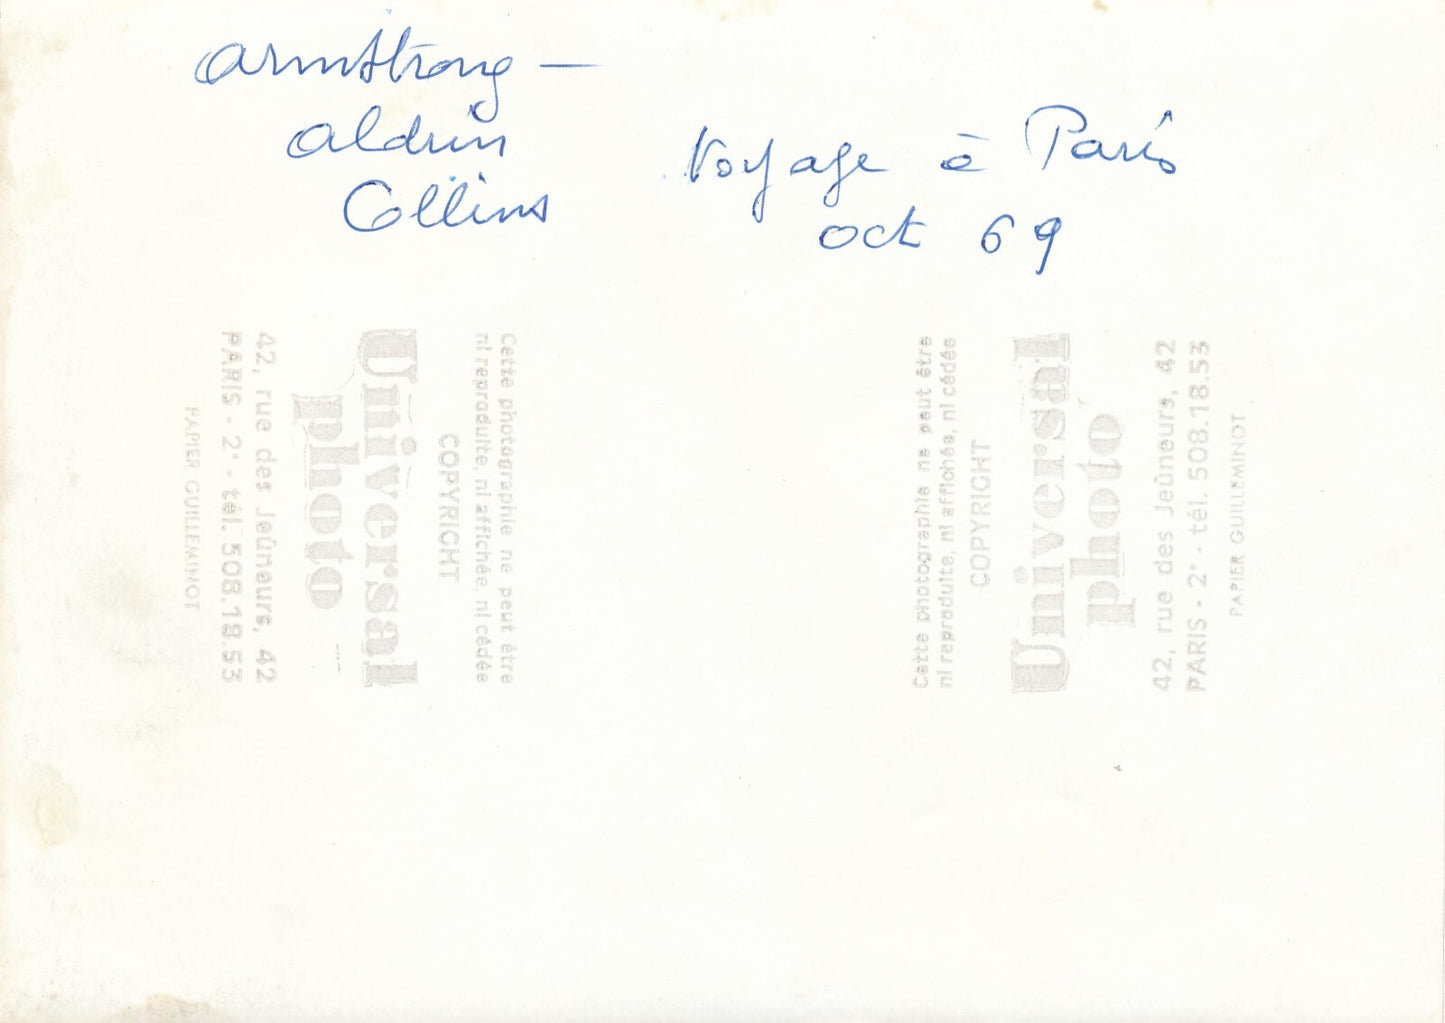 Armstrong —
Aldrin
Collins
Voyage à Paris
oct 69
Cette photographie ne peut être
ni reproduite, ni affichée, ni cédée
COPYRIGHT
Universal
photo
42, rue des Jeûneurs, 42
PARIS - 2e - tél. 508.18.53
PAPIER GUILLEMINOT
Cette photographie ne peut être
ni reproduite, ni affichée, ni cédée
COPYRIGHT
Universal
photo
42, rue des Jeûneurs, 42
PARIS - 2e - tél. 508.18.53
PAPIER GUILLEMINOT